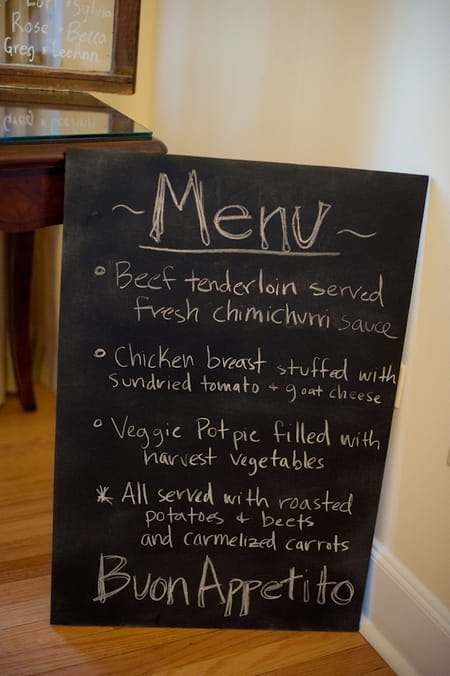 Rose • Becca
Greg • LeeAnn
~ Menu ~
° Beef tenderloin served
fresh chimichurri sauce
° Chicken breast stuffed with
sundried tomato + goat cheese
° Veggie Potpie filled with
harvest vegetables
* All served with roasted
potatoes + beets
and carmelized carrots
Buon Appetito